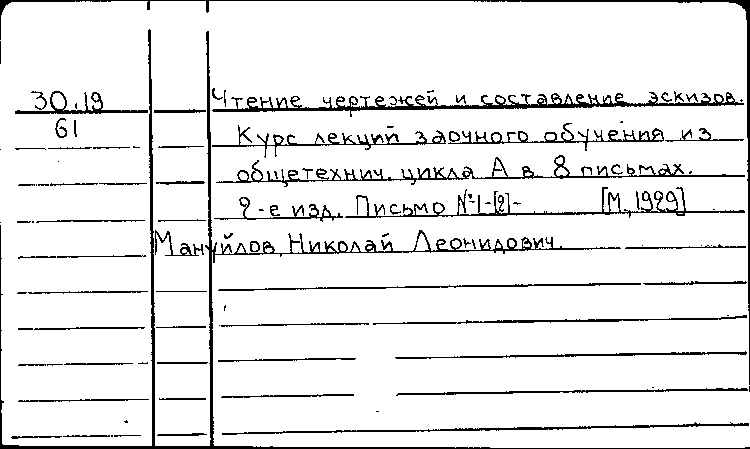 30.19
Чтение чертежей и составление эскизов.
61
Курс лекций заочного обучения из
общетехнич. цикла А в 8 письмах.
2-е изд. Письмо №1-[2]- [М., 1929]
Мануйлов, Николай Леонидович.